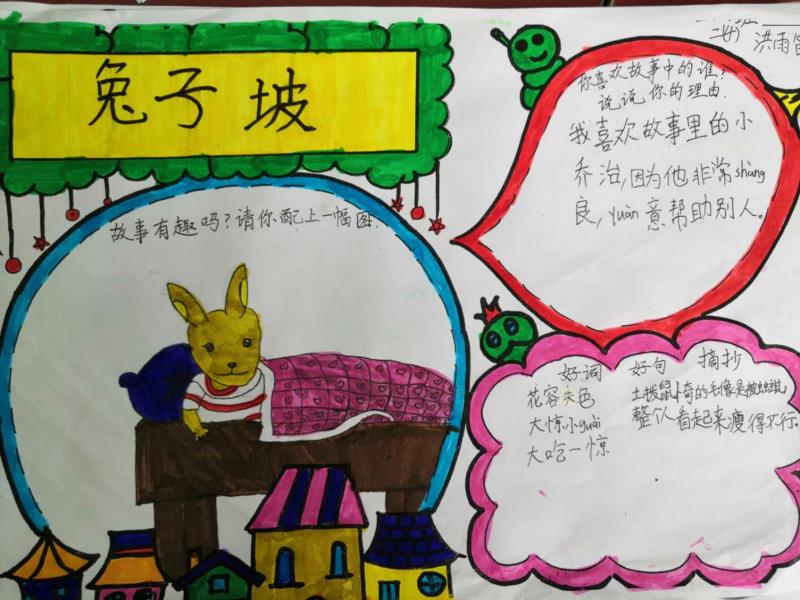 兔子坡
二(4) 洪雨
故事有趣吗?请你配上一幅图.
你喜欢故事中的谁?
说说你的理由.
我喜欢故事里的小
乔治,因为他非常shàng
良,yuàn意帮助别人。
好词 好句 摘抄
花容失色
大惊小guài
大吃一惊
土拨鼠 奇的毛像是被虫蛀
整个人看起来瘦得不行。